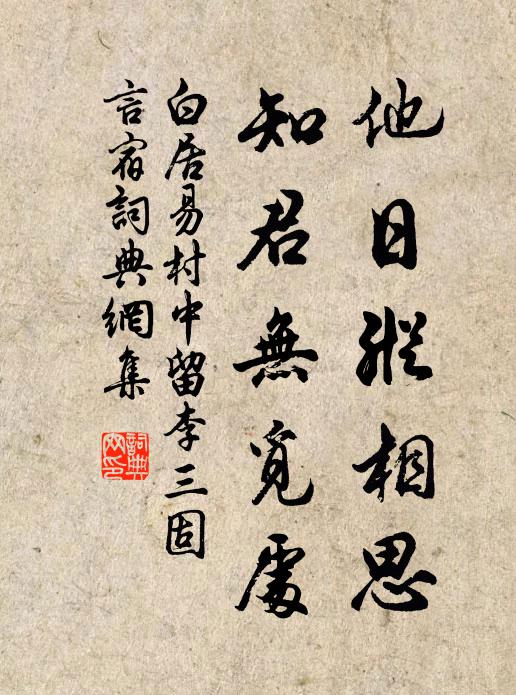 他日縱相思
知君無覓處
白居易村中留李三固
言宿詞典網集
詞典
网印